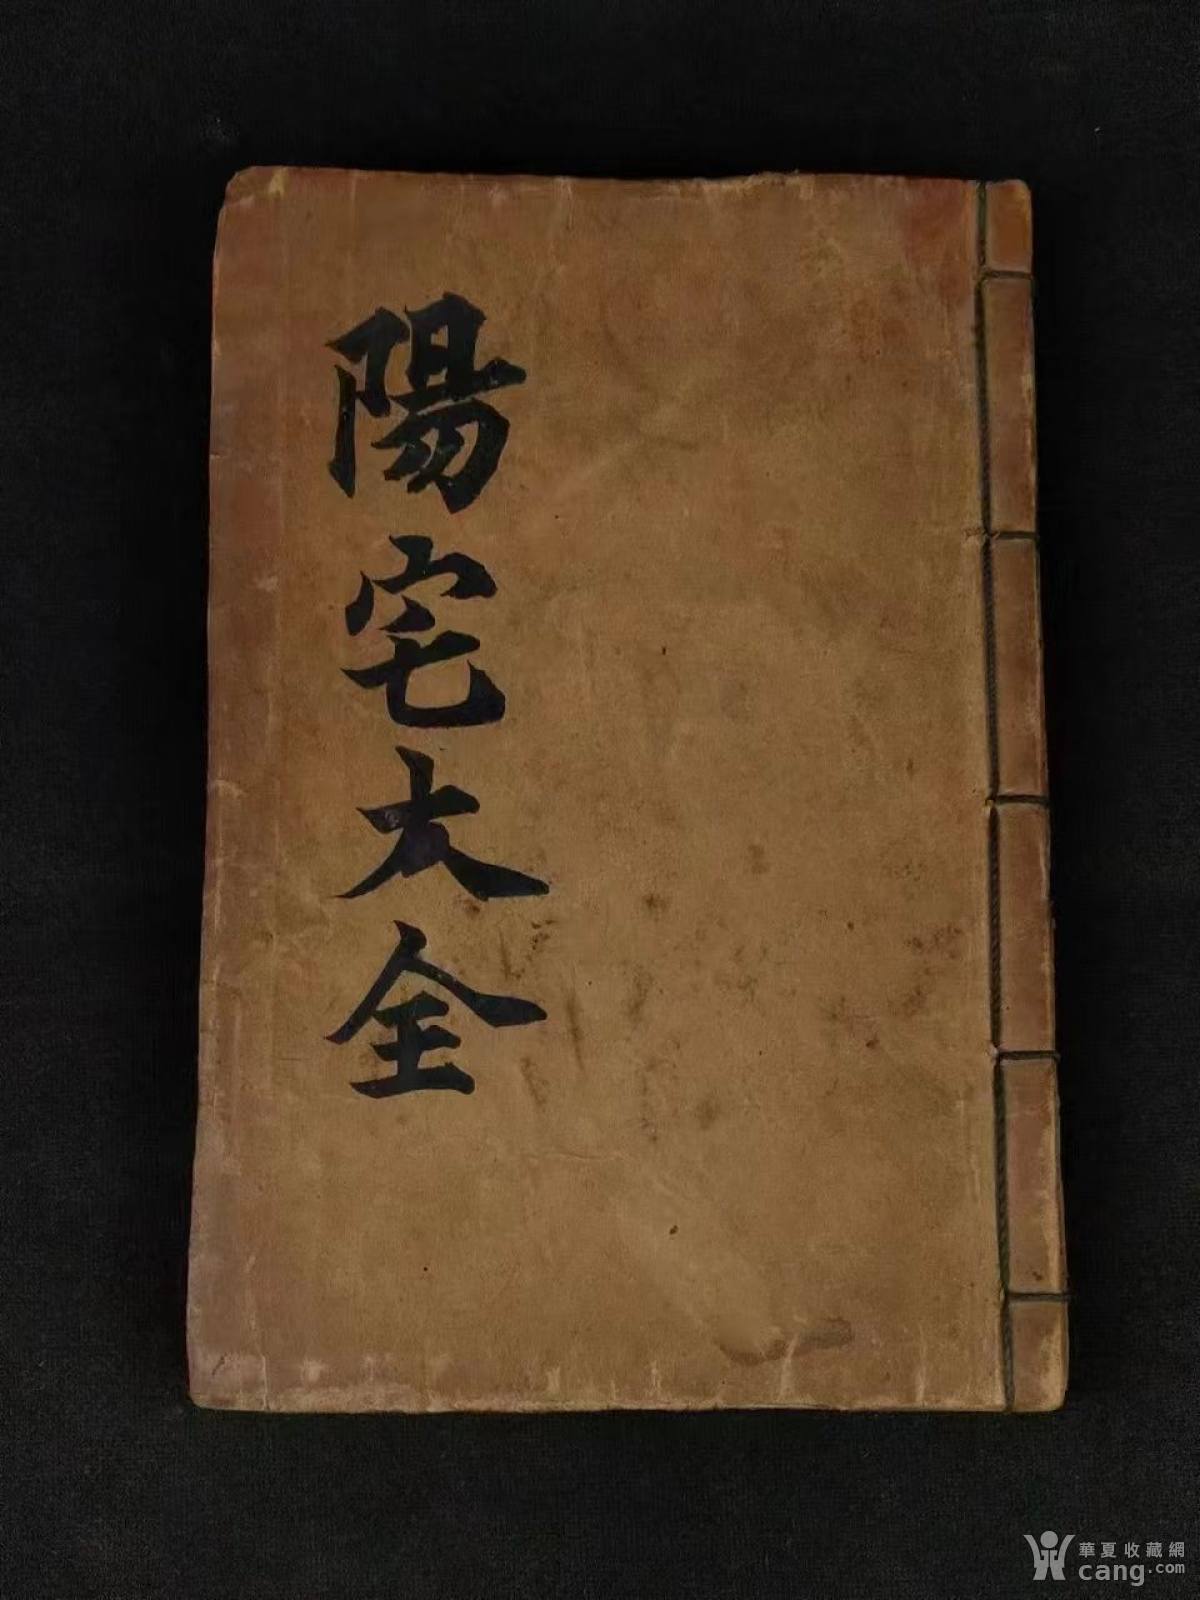 陽宅大全
華夏收藏網
cang.com